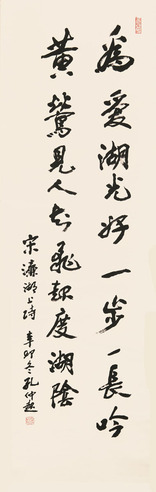 為愛湖光好一步一長吟
黃鶯見人飛起度湖陰
宋濂湖上詩 辛卯冬孔仲起